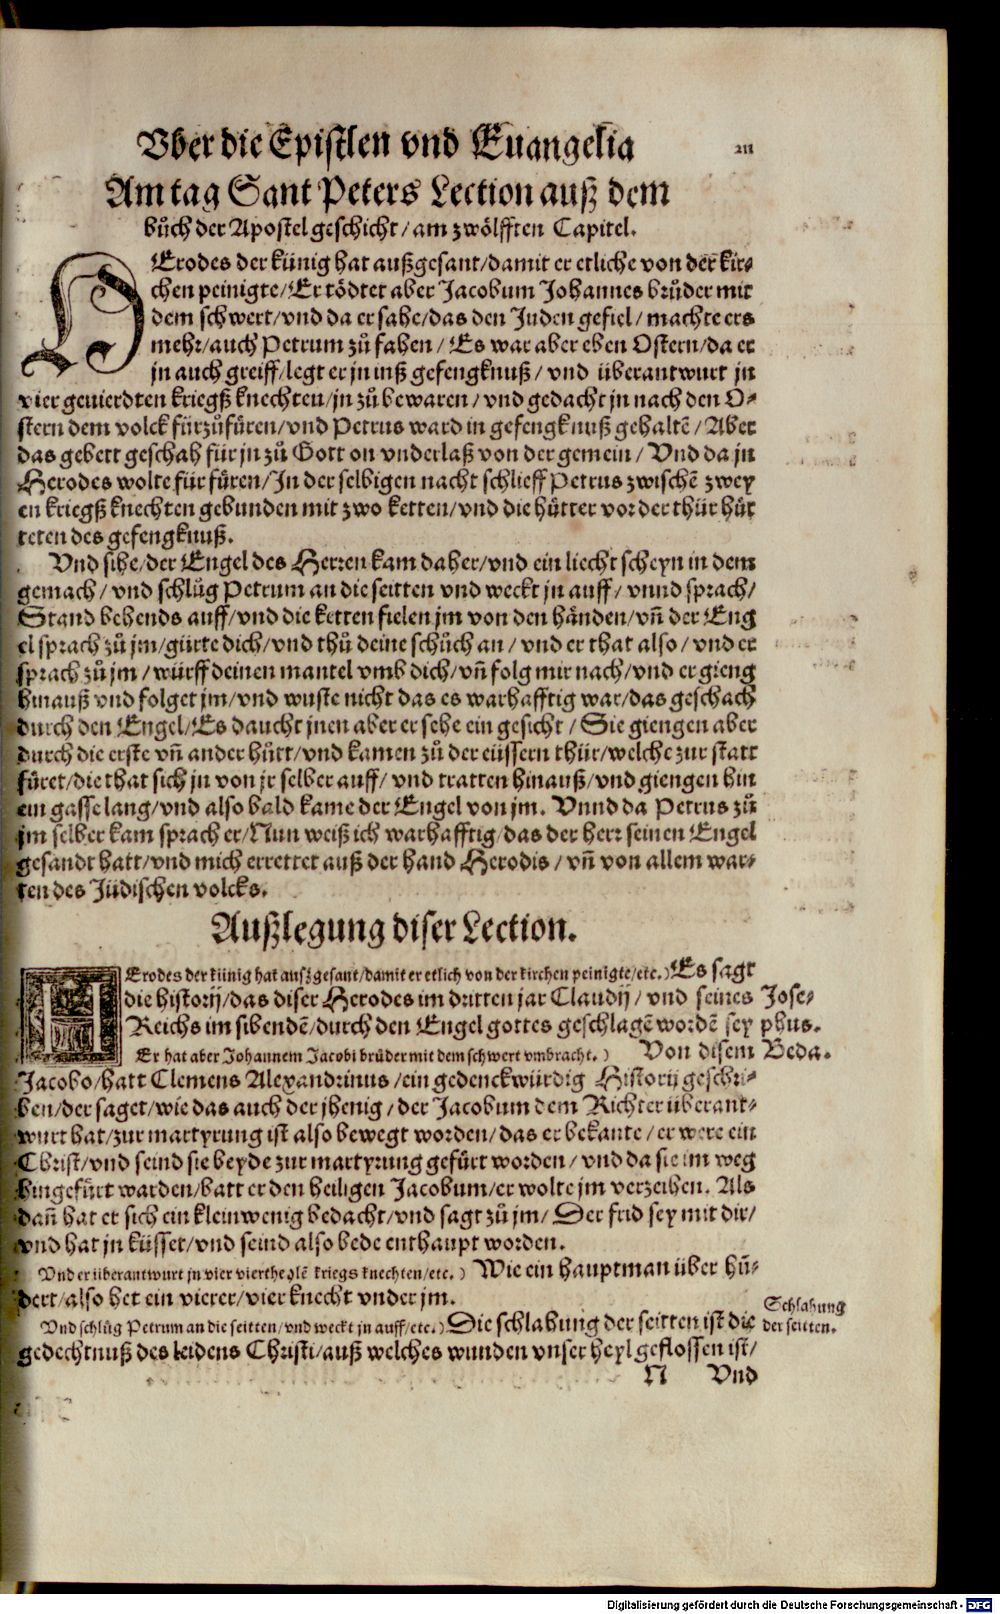 Vber die Epistlen vnd Euangelia
Am tag Sant Peters Lection auß dem
bůch der Apostel geschicht / am zwölfften Capitel.
HErodes der künig hat außgesant / damit er etliche von der kir⸗
chen peinigte / Er tödtet aber Jacobum Johannes brůder mit
dem schwert / vnd da er sahe / das den Juden gefiel / machte ers
mehr / auch Petrum zů fahen / Es war aber eben Ostern / da er
jn auch greiff / legt er jn inß gefengknuß / vnd überantwurt jn
vier geuierdten kriegß knechten / jn zů bewaren / vnd gedacht jn nach den O⸗
stern dem volck fürzůfüren / vnd Petrus ward in gefengknuß gehaltē / Aber
das gebett geschah für jn zů Gott on vnderlaß von der gemein / Vnd da jn
Herodes wolte für füren / In der selbigen nacht schlieff Petrus zwischē zwey
en kriegß knechten gebunden mit zwo ketten / vnd die hütter vor der thür hüt
teten des gefengknuß.
Vnd sihe / der Engel des Herren kam daher / vnd ein liecht scheyn in dem
gemach / vnd schlůg Petrum an die seitten vnd weckt jn auff / vnnd sprach /
Stand behends auff / vnd die ketten fielen jm von den händen / vñ der Eng
el sprach zů jm / gürte dich / vnd thů deine schůch an / vnd er that also / vnd er
sprach zů jm / würff deinen mantel vmb dich / vñ folg mir nach / vnd er gieng
hinauß vnd folget jm / vnd wuste nicht das es warhafftig war / das geschach
durch den Engel / Es daucht jnen aber er sehe ein gesicht / Sie giengen aber
durch die erste vñ ander hůtt / vnd kamen zů der eüssern thür / welche zur statt
füret / die that sich jn von jr selber auff / vnd tratten hinauß / vnd giengen hin
ein gasse lang / vnd also bald kame der Engel von jm. Vnnd da Petrus zů
jm selber kam sprach er / Nun weiß ich warhafftig / das der herr seinen Engel
gesandt hatt / vnd mich errettet auß der hand Herodis / vñ von allem war⸗
ten des Jüdischen volcks.
Außlegung diser Lection.
HErodes der künig hat außgesant / damit er etlich von der kirchen peinigte / etc.) Es sagt
die historij / das diser Herodes im dritten jar Claudij / vnd seines Jose⸗
Reichs im sibendē / durch den Engel gottes geschlagē wordē sey phus.
Er hat aber Johannem Jacobi brůder mit dem schwert vmbracht.) Von disem Beda.
Jacobo / hatt Clemens Alexandrinus / ein gedenckwürdig Historij geschri⸗
ben / der saget / wie das auch der jhenig / der Jacobum dem Richter überant⸗
wurt hat / zur martyrung ist also bewegt worden / das er bekante / er were ein
Christ / vnd seind sie beyde zur martyrung gefürt worden / vnd da sie im weg
hingefürt warden / batt er den heiligen Jacobum / er wolte jm verzeihen. Als
dañ hat er sich ein klein wenig bedacht / vnd sagt zů jm / Der frid sey mit dir /
vnd hat jn küsset / vnd seind also bede enthaupt worden.
Vnd er überantwurt jn vier viertheqlē kriegs knechten / etc.) Wie ein hauptman über hū⸗
dert / also het ein vierer / vier knecht vnder jm.
Vnd schlůg Petrum an die seitten / vnd weckt jn auff / etc.) Die schlahung der seitten ist die
gedechtnuß des leidens Christi / auß welches wunden vnser heyl geflossen ist /
Schlahung
der seitten.
N Vnd
Digitalisierung gefördert durch die Deutsche Forschungsgemeinschaft - DFG